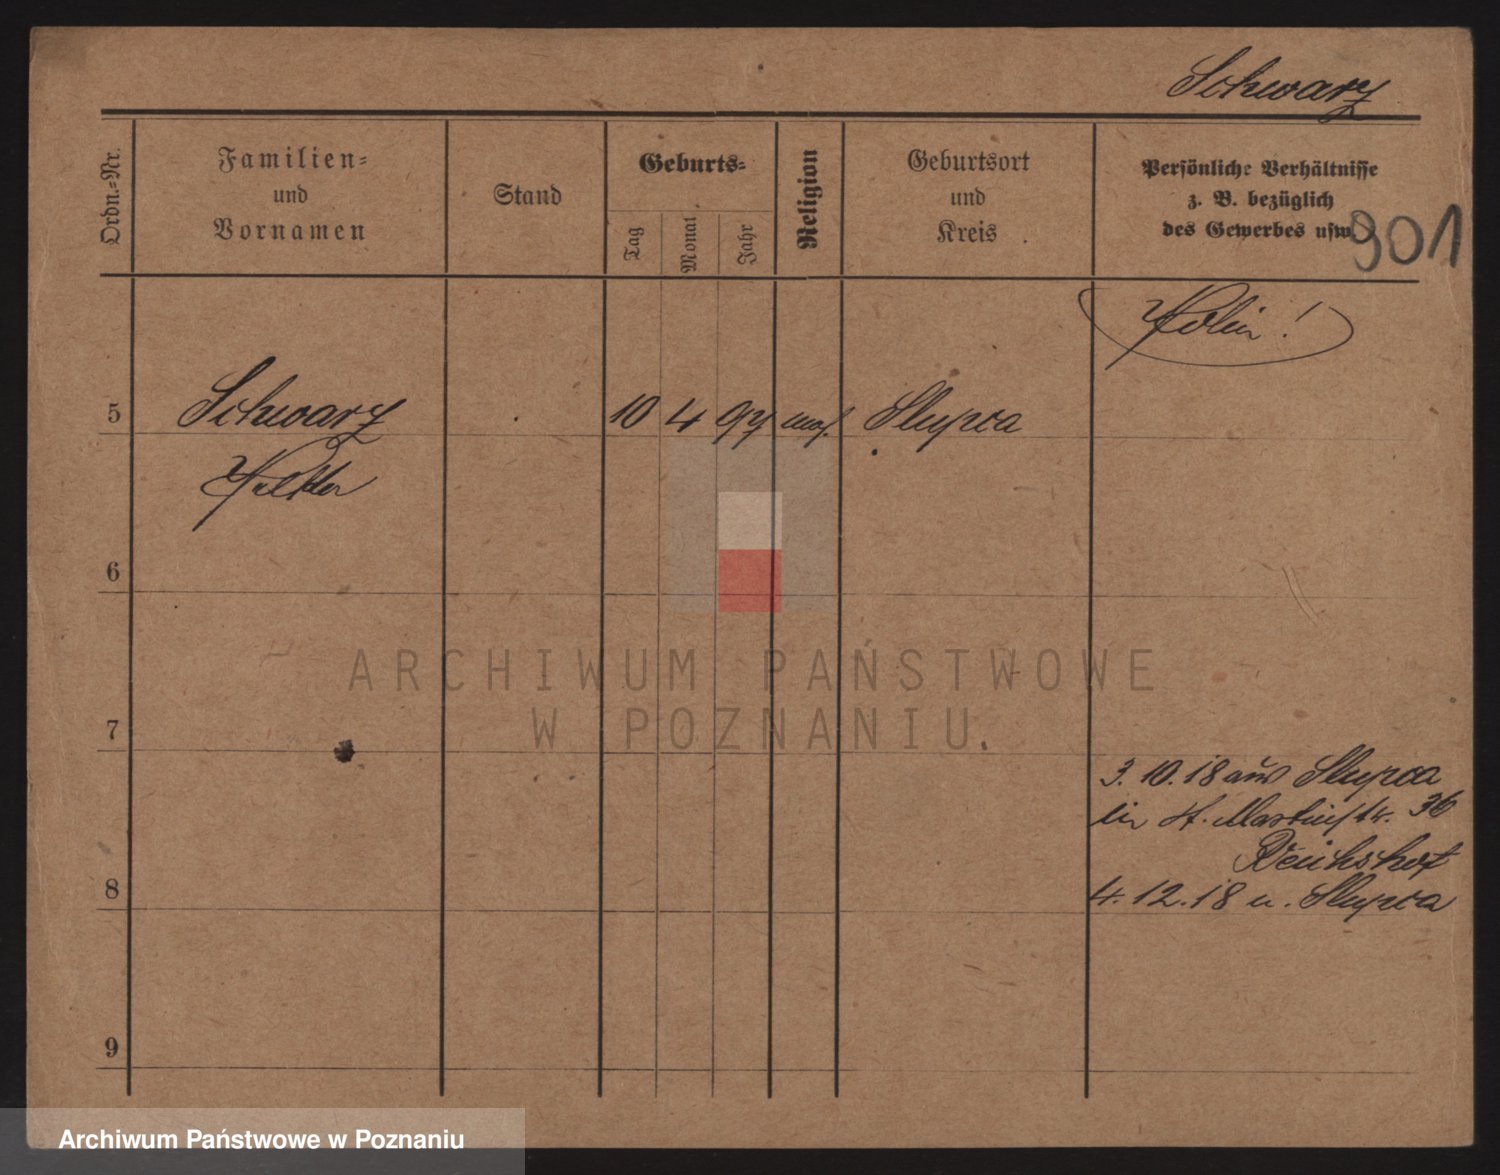 Schwarz
Ordn.=Nr.
Familien=
und
Vornamen
Stand
Geburts=
Tag
Monat
Jahr
Religion
Geburtsort
und
Kreis
Persönliche Verhältnisse
z. B. bezüglich
des Gewerbes usw.
901
5
Schwarz
10
4
97
Slupca
Walter
6
ARCHIWUM PAŃSTWOWE
W POZNANIU
7
3. 10. 18 aus Slupca
in St. Martinstr. 36
Reichshof
8
4. 12. 18 n. Slupca
9
Archiwum Państwowe w Poznaniu